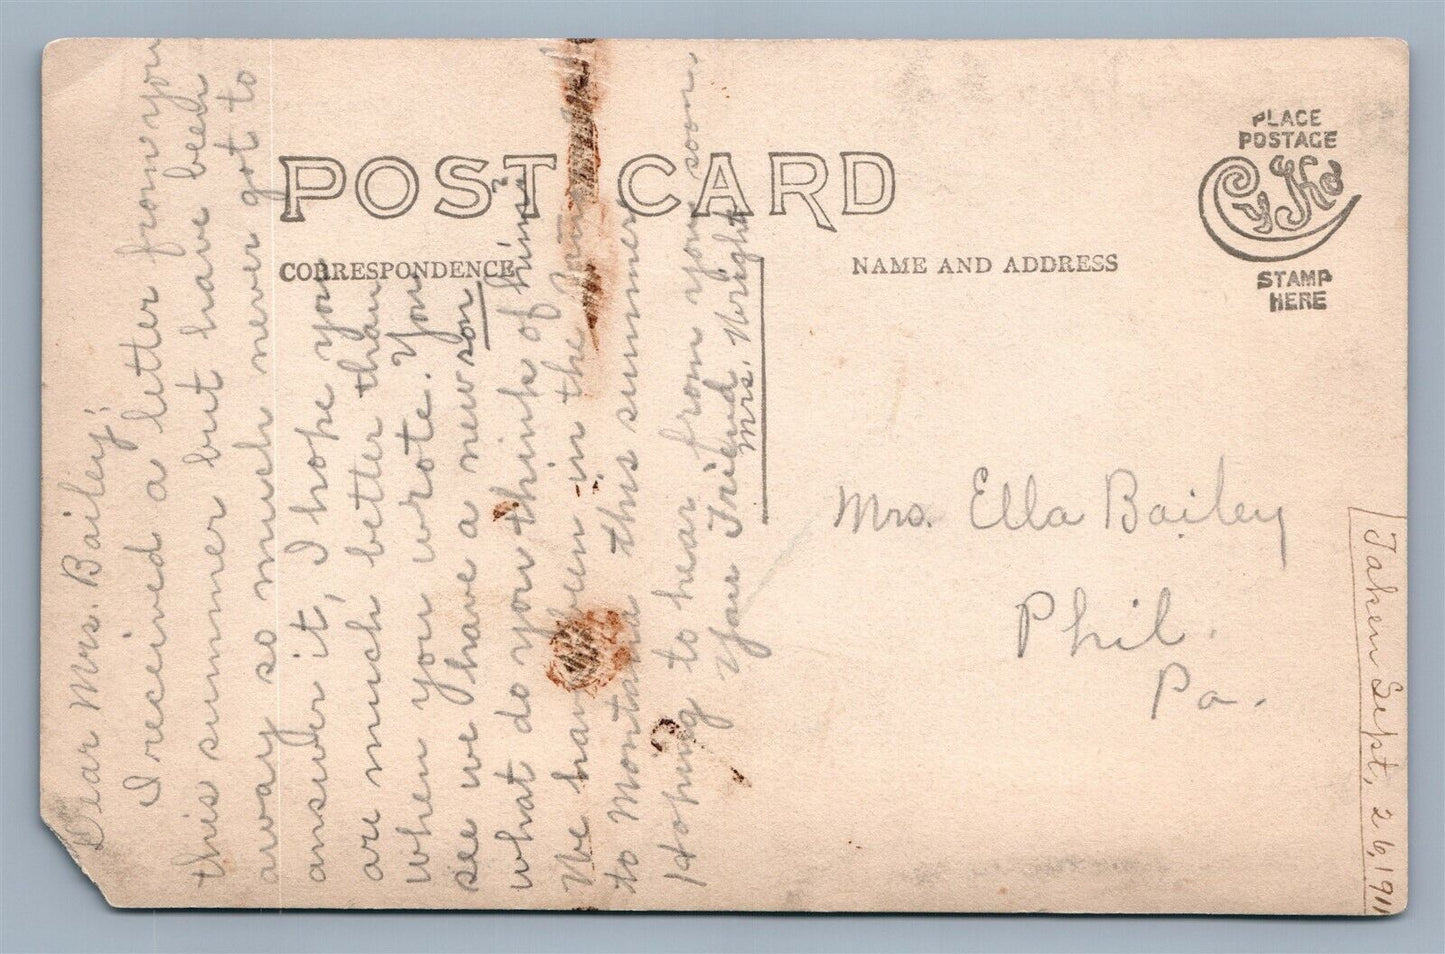 POST CARD
CORRESPONDENCE
NAME AND ADDRESS
PLACE
POSTAGE
CYKO
STAMP
HERE
Dear Mrs. Bailey:
I received a letter from you
this summer but have been
away so much never got to
answer it, I hope you
are much better than
when you wrote. You
see we have a new son
what do you think of him?
We have been in the
to Montana this summer
Hoping to hear from you soon.
Your Friend
Mrs. Wright
Mrs. Ella Bailey
Phil.
Pa.
Taken Sept. 26, 1911